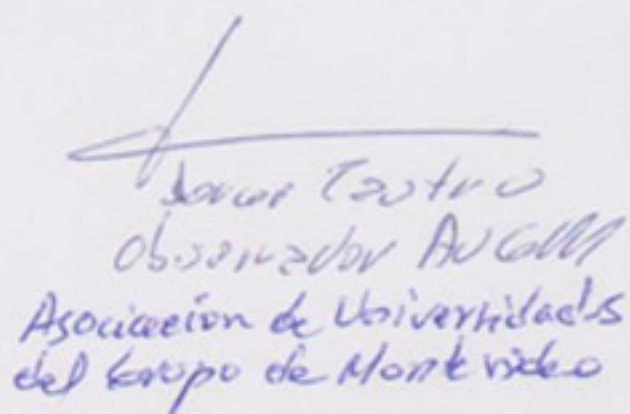 Castro
Observador AUGM
Asociación de Universidades
del Grupo de Montevideo